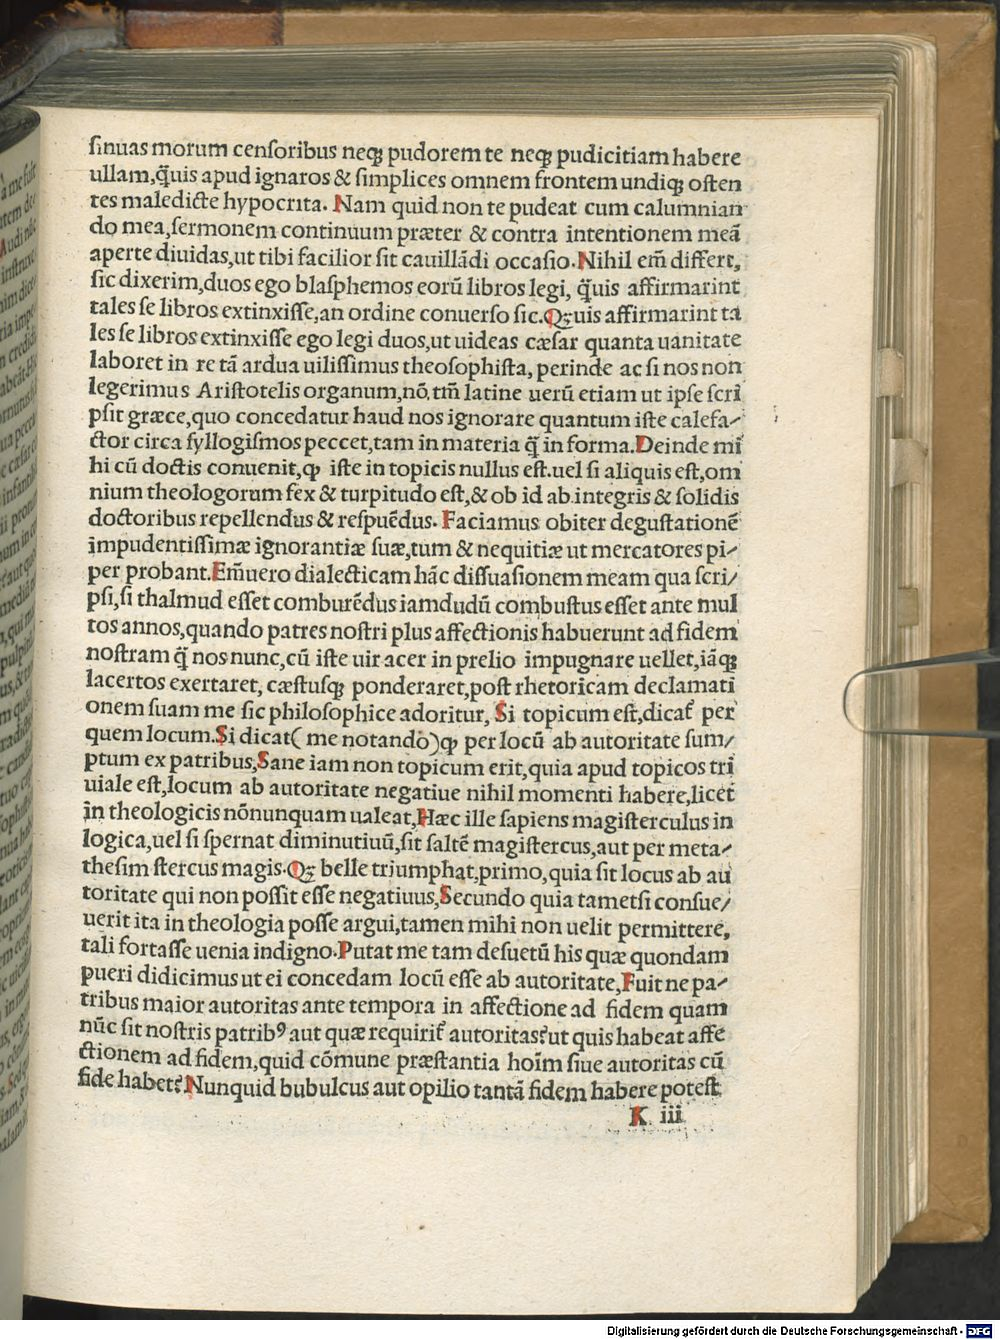 sinuas morum censoribus neqꝫ pudorem te neqꝫ pudicitiam habere
ullam,q̃uis apud ignaros & simplices omnem frontem undiqꝫ osten
tes maledicte hypocrita. Nam quid non te pudeat cum calumnian
do mea,sermonem continuum præter & contra intentionem meã
aperte diuidas,ut tibi facilior sit cauillãdi occasio.Nihil em̃ differt,
sic dixerim,duos ego blasphemos eorũ libros legi, q̃uis affirmarint
tales se libros extinxisse,an ordine conuerso sic.Qꝫuis affirmarint ta
les se libros extinxisse ego legi duos,ut uideas cæsar quanta uanitate
laboret in re tã ardua uilissimus theosophista, perinde ac si nos non
legerimus Aristotelis organum,nõ tm̃ latine uerũ etiam ut ipse scri
psit græce,quo concedatur haud nos ignorare quantum iste calefa-
ctor circa syllogismos peccet,tam in materia q̃ in forma.Deinde mi
hi cũ doctis conuenit,ꝙ iste in topicis nullus est.uel si aliquis est,om
nium theologorum fex & turpitudo est,& ob id ab integris & solidis
doctoribus repellendus & respuẽdus. Faciamus obiter degustationẽ
impudentissimæ ignorantiæ suæ,tum & nequitiæ ut mercatores pi-
per probant.Em̃uero dialecticam hãc dissuasionem meam qua scri/
psi,si thalmud esset comburẽdus iamdudũ combustus esset ante mul
tos annos,quando patres nostri plus affectionis habuerunt ad fidem
nostram q̃ nos nunc,cũ iste uir acer in prelio impugnare uellet,iãqꝫ
lacertos exertaret, cæstusqꝫ ponderaret,post rhetoricam declamati
onem suam me sic philosophice adoritur, Si topicum est,dicat᷑ per
quem locum.Si dicat( me notando)ꝙ per locũ ab autoritate sum/
ptum ex patribus,Sane iam non topicum erit,quia apud topicos tri
uiale est,locum ab autoritate negatiue nihil momenti habere,licet
in theologicis nõnunquam ualeat,Hæc ille sapiens magisterculus in
logica,uel si spernat diminutiuũ,sit saltẽ magistercus,aut per meta-
thesim stercus magis.Qꝫ belle triumphat,primo,quia sit locus ab au
toritate qui non possit esse negatiuus,Secundo quia tametsi consue/
uerit ita in theologia posse argui,tamen mihi non uelit permittere,
tali fortasse uenia indigno.Putat me tam desuetũ his quæ quondam
pueri didicimus ut ei concedam locũ esse ab autoritate,Fuit ne pa-
tribus maior autoritas ante tempora in affectione ad fidem quam
nũc sit nostris patribꝰ aut quæ requirit᷑ autoritas?ut quis habeat affe
ctionem ad fidem,quid cõmune præstantia hoĩm siue autoritas cũ
fide habet?Nunquid bubulcus aut opilio tantã fidem habere potest
K iii
Digitalisierung gefördert durch die Deutsche Forschungsgemeinschaft - DFG